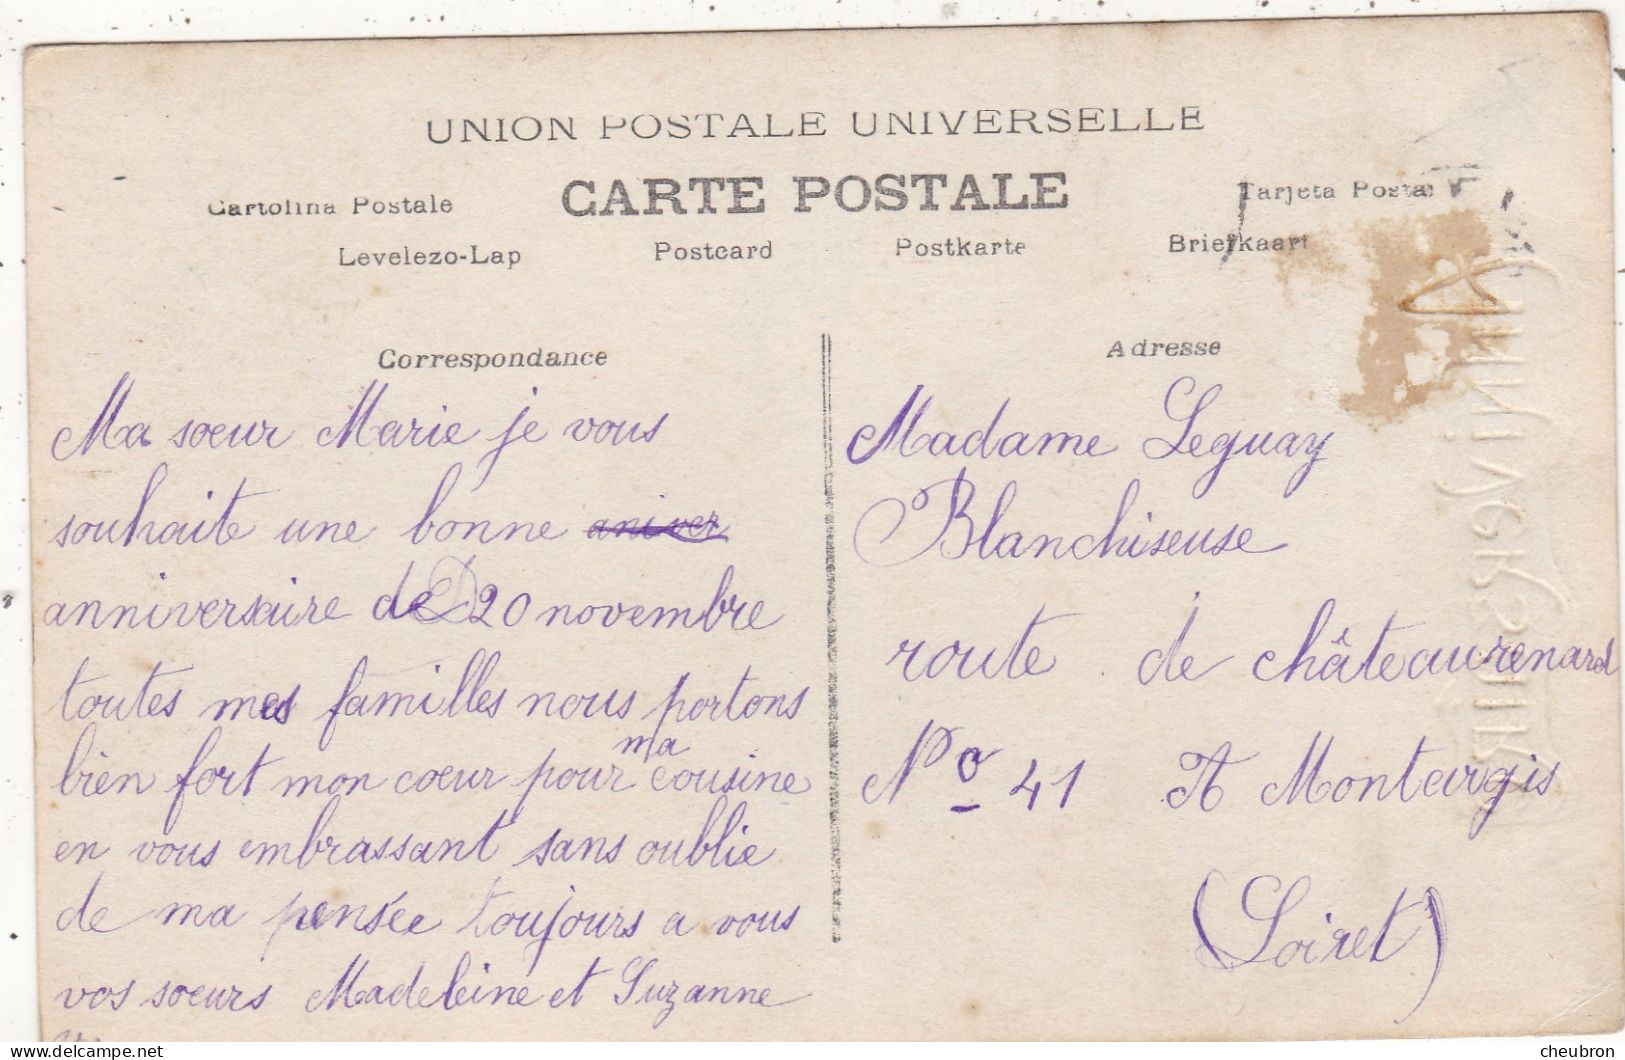 UNION POSTALE UNIVERSELLE
CARTE POSTALE
Cartolina Postale
Tarjeta Postal
Levelezo-Lap Postcard Postkarte Briefkaart
Correspondance
Ma soeur Marie je vous
souhaite une bonne aniver
anniversaire de 20 novembre
toutes mes familles nous portons
bien fort mon coeur pour ma cousine
en vous embrassant sans oublie
de ma pensée toujours a vous
vos soeurs Madeleine et Suzanne
Adresse
Madame Leguay
Blanchiseuse
route de châteaurenard
No 41 A Montargis
(Loiret)
cheubron - delcampe.net